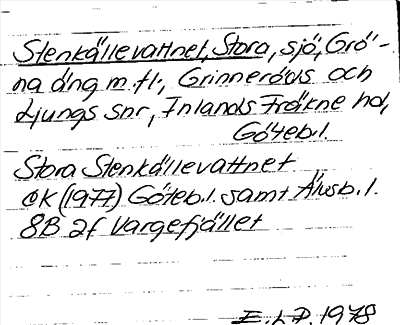 Stenkällevattnet, Stora, sjö, Grö-
na äng m.fl., Grinneröds och
Ljungs snr, Inlands Fräkne hd,
Göteb.l.
Stora Stenkällevattnet
EK (1977) Göteb.l. samt Älvsb.l.
8B 2f Vargefjället
E.L.P. 1978